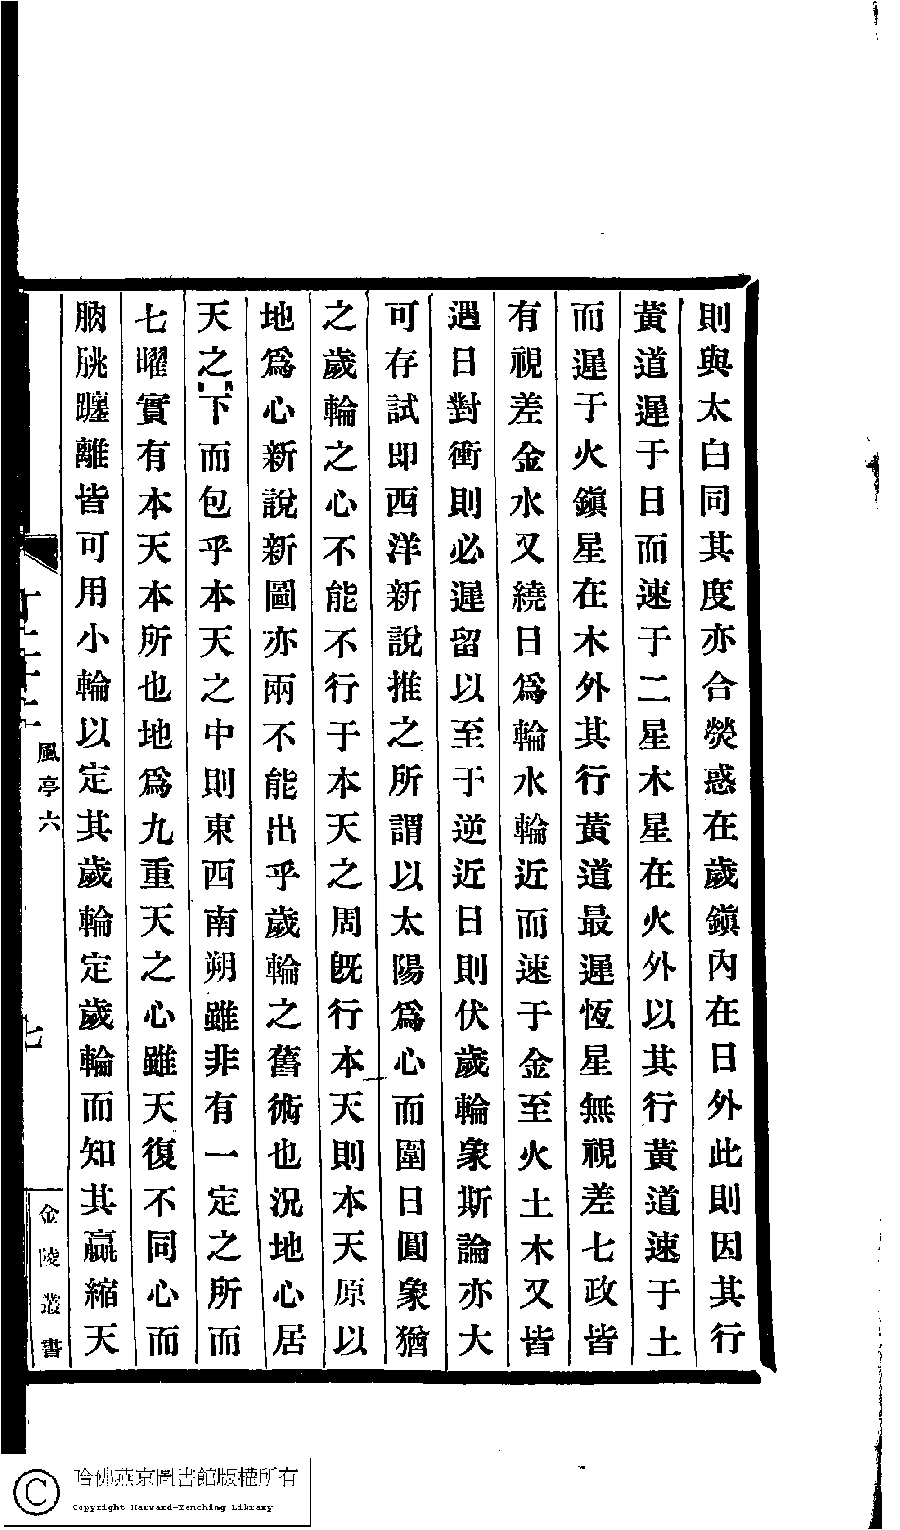 則與太白同其度亦合熒惑在歲鎭內在日外此則因其行
黃道遲于日而速于二星木星在火外以其行黃道速于土
而遲于火鎭星在木外其行黃道最遲恆星無視差七政皆
有視差金水又繞日爲輪水輪近而速于金至火土木又皆
遇日對衝則必遲留以至于逆近日則伏歲輪象斯論亦大
可存試即西洋新說推之所謂以太陽爲心而圍日圓象猶
之歲輪之心不能不行于本天之周旣行本天則本天原以
地爲心新說新圖亦兩不能出乎歲輪之舊術也況地心居
天之下而包乎本天之中則東西南朔雖非有一定之所而
七曜實有本天本所也地爲九重天之心雖天復不同心而
朒朓躔離皆可用小輪以定其歲輪定歲輪而知其贏縮天
風亭六
七
金陵叢書
哈佛燕京圖書館版權所有
Copyright Harvard-Yenching Library